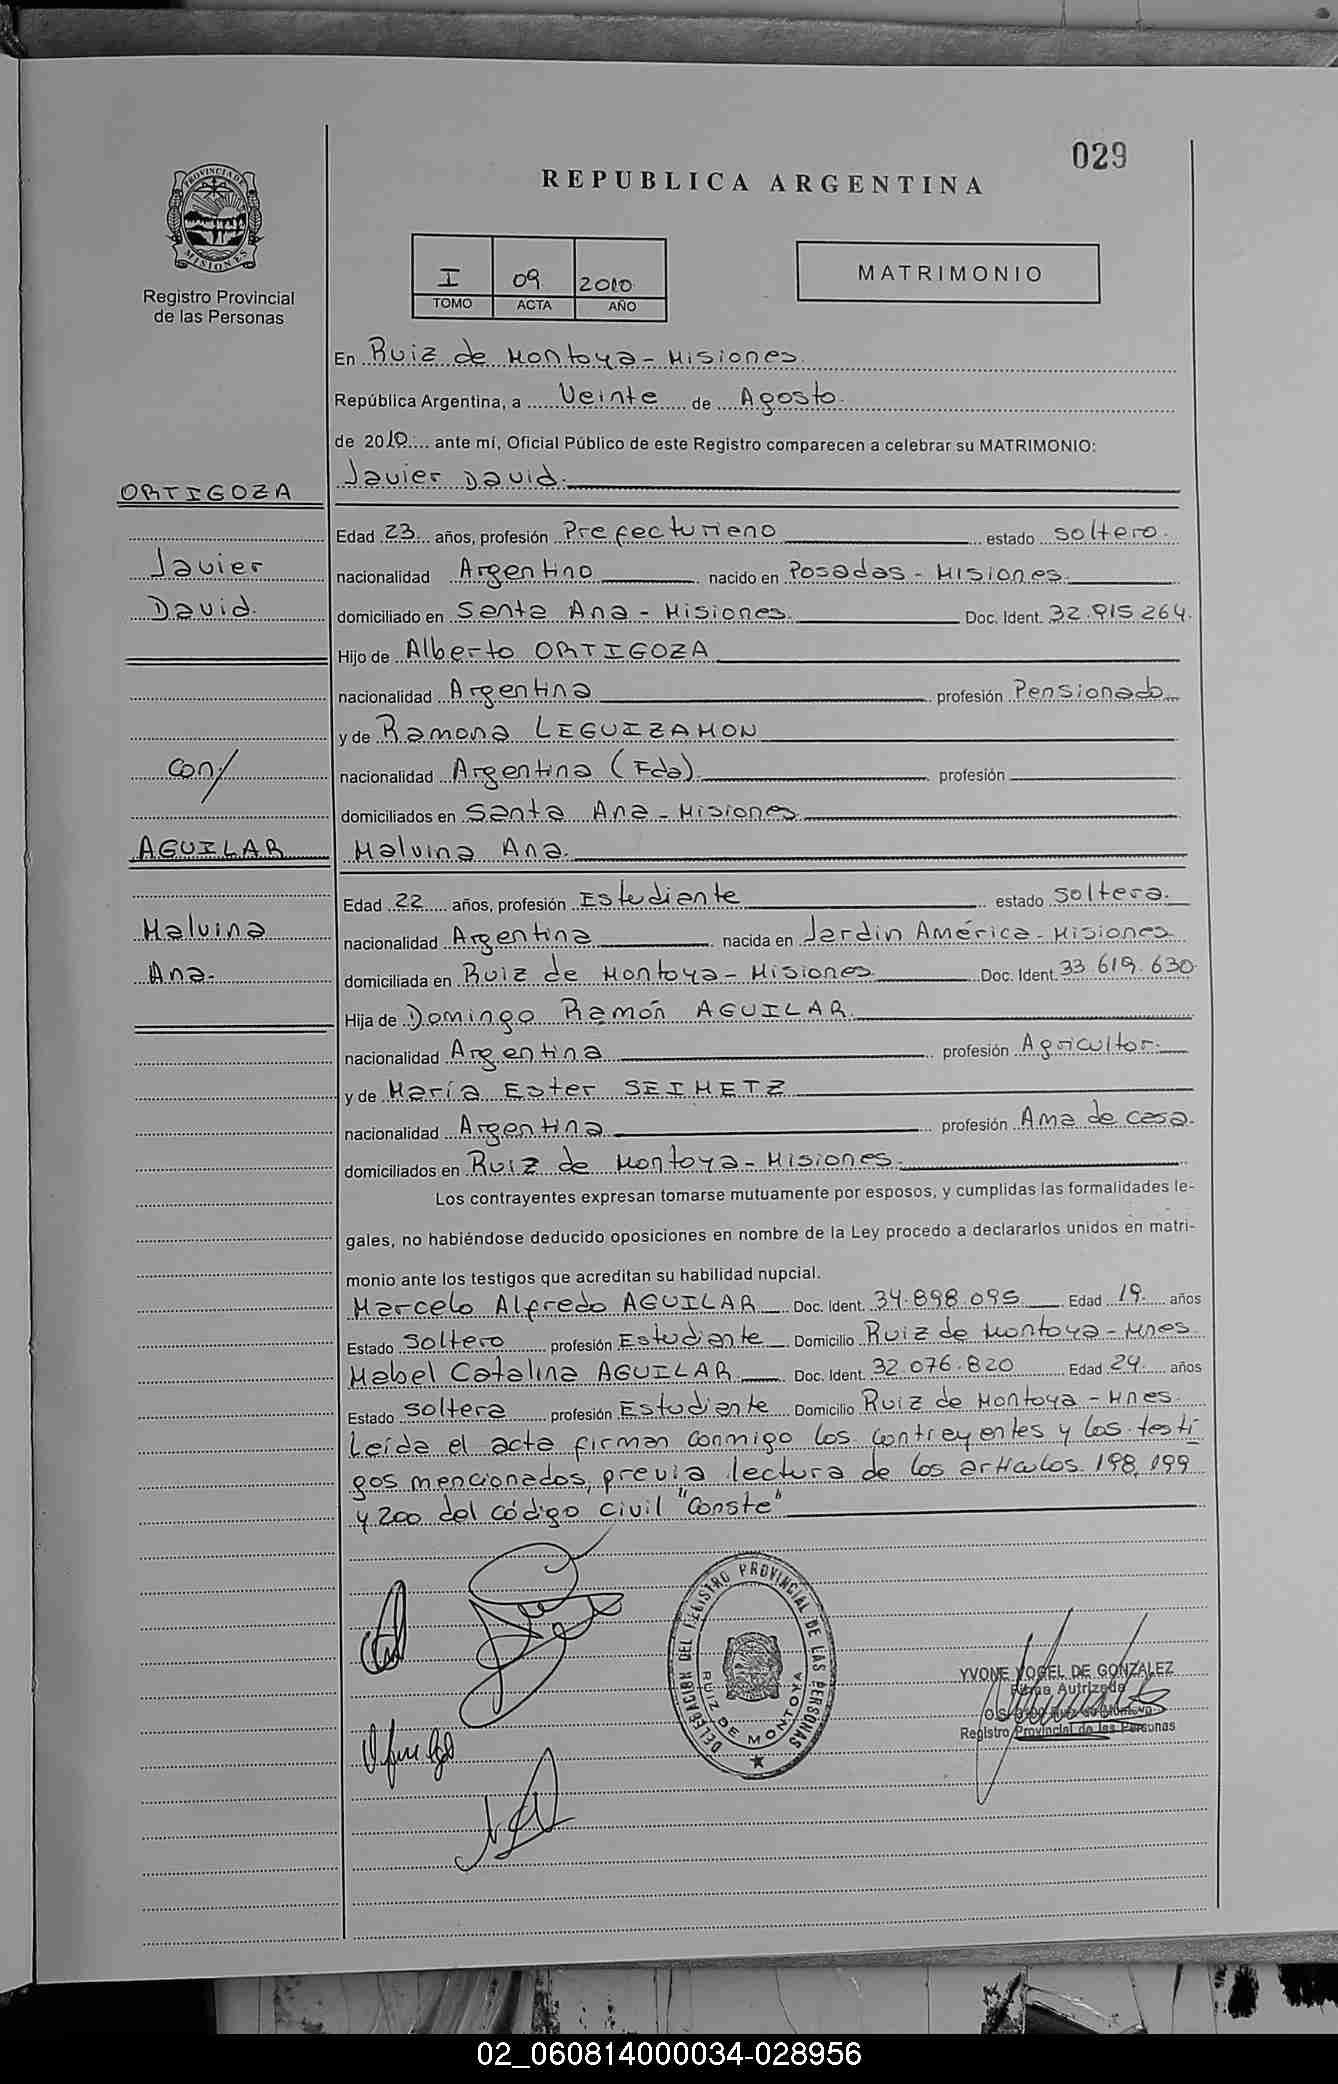 029
REPUBLICA ARGENTINA
PROVINCIA DE MISIONES
Registro Provincial
de las Personas
I 09 2010
TOMO ACTA AÑO
MATRIMONIO
En Ruiz de Montoya - Misiones.
República Argentina, a Veinte de Agosto.
de 2010 ante mí, Oficial Público de este Registro comparecen a celebrar su MATRIMONIO:
ORTIGOZA Javier David.
Edad 23 años, profesión Prefecturieno estado soltero.
Javier nacionalidad Argentino nacido en Posadas - Misiones.
David. domiciliado en Santa Ana - Misiones. Doc. Ident. 32.915.264.
Hijo de Alberto ORTIGOZA
nacionalidad Argentina profesión Pensionado
y de Ramona LEGUIZAMON
con/ nacionalidad Argentina (Fda). profesión
domiciliados en Santa Ana - Misiones
AGUILAR Malvina Ana.
Edad 22 años, profesión Estudiante estado soltera.
Malvina nacionalidad Argentina nacida en Jardin América - Misiones
Ana. domiciliada en Ruiz de Montoya - Misiones Doc. Ident. 33.619.630
Hija de Domingo Ramón AGUILAR.
nacionalidad Argentina profesión Agricultor.
y de María Ester SEIMETZ
nacionalidad Argentina profesión Ama de casa.
domiciliados en Ruiz de Montoya - Misiones.
Los contrayentes expresan tomarse mutuamente por esposos, y cumplidas las formalidades le-
gales, no habiéndose deducido oposiciones en nombre de la Ley procedo a declararlos unidos en matri-
monio ante los testigos que acreditan su habilidad nupcial.
Marcelo Alfredo AGUILAR Doc. Ident. 34.898.095 Edad 19 años
Estado soltero profesión Estudiante Domicilio Ruiz de Montoya - Mnes.
Mabel Catalina AGUILAR Doc. Ident. 32.076.820 Edad 24 años
Estado soltera profesión Estudiante Domicilio Ruiz de Montoya - Mnes.
Leída el acta firman conmigo los contrayentes y los testi
gos mencionados, previa lectura de los artículos 198, 199
y 200 del código civil "Conste"
DELEGACION DEL REGISTRO PROVINCIAL DE LAS PERSONAS
RUIZ DE MONTOYA
YVONE VOGEL DE GONZALEZ
Firma Autrizada
Registro Provincial de las Personas
02_060814000034-028956